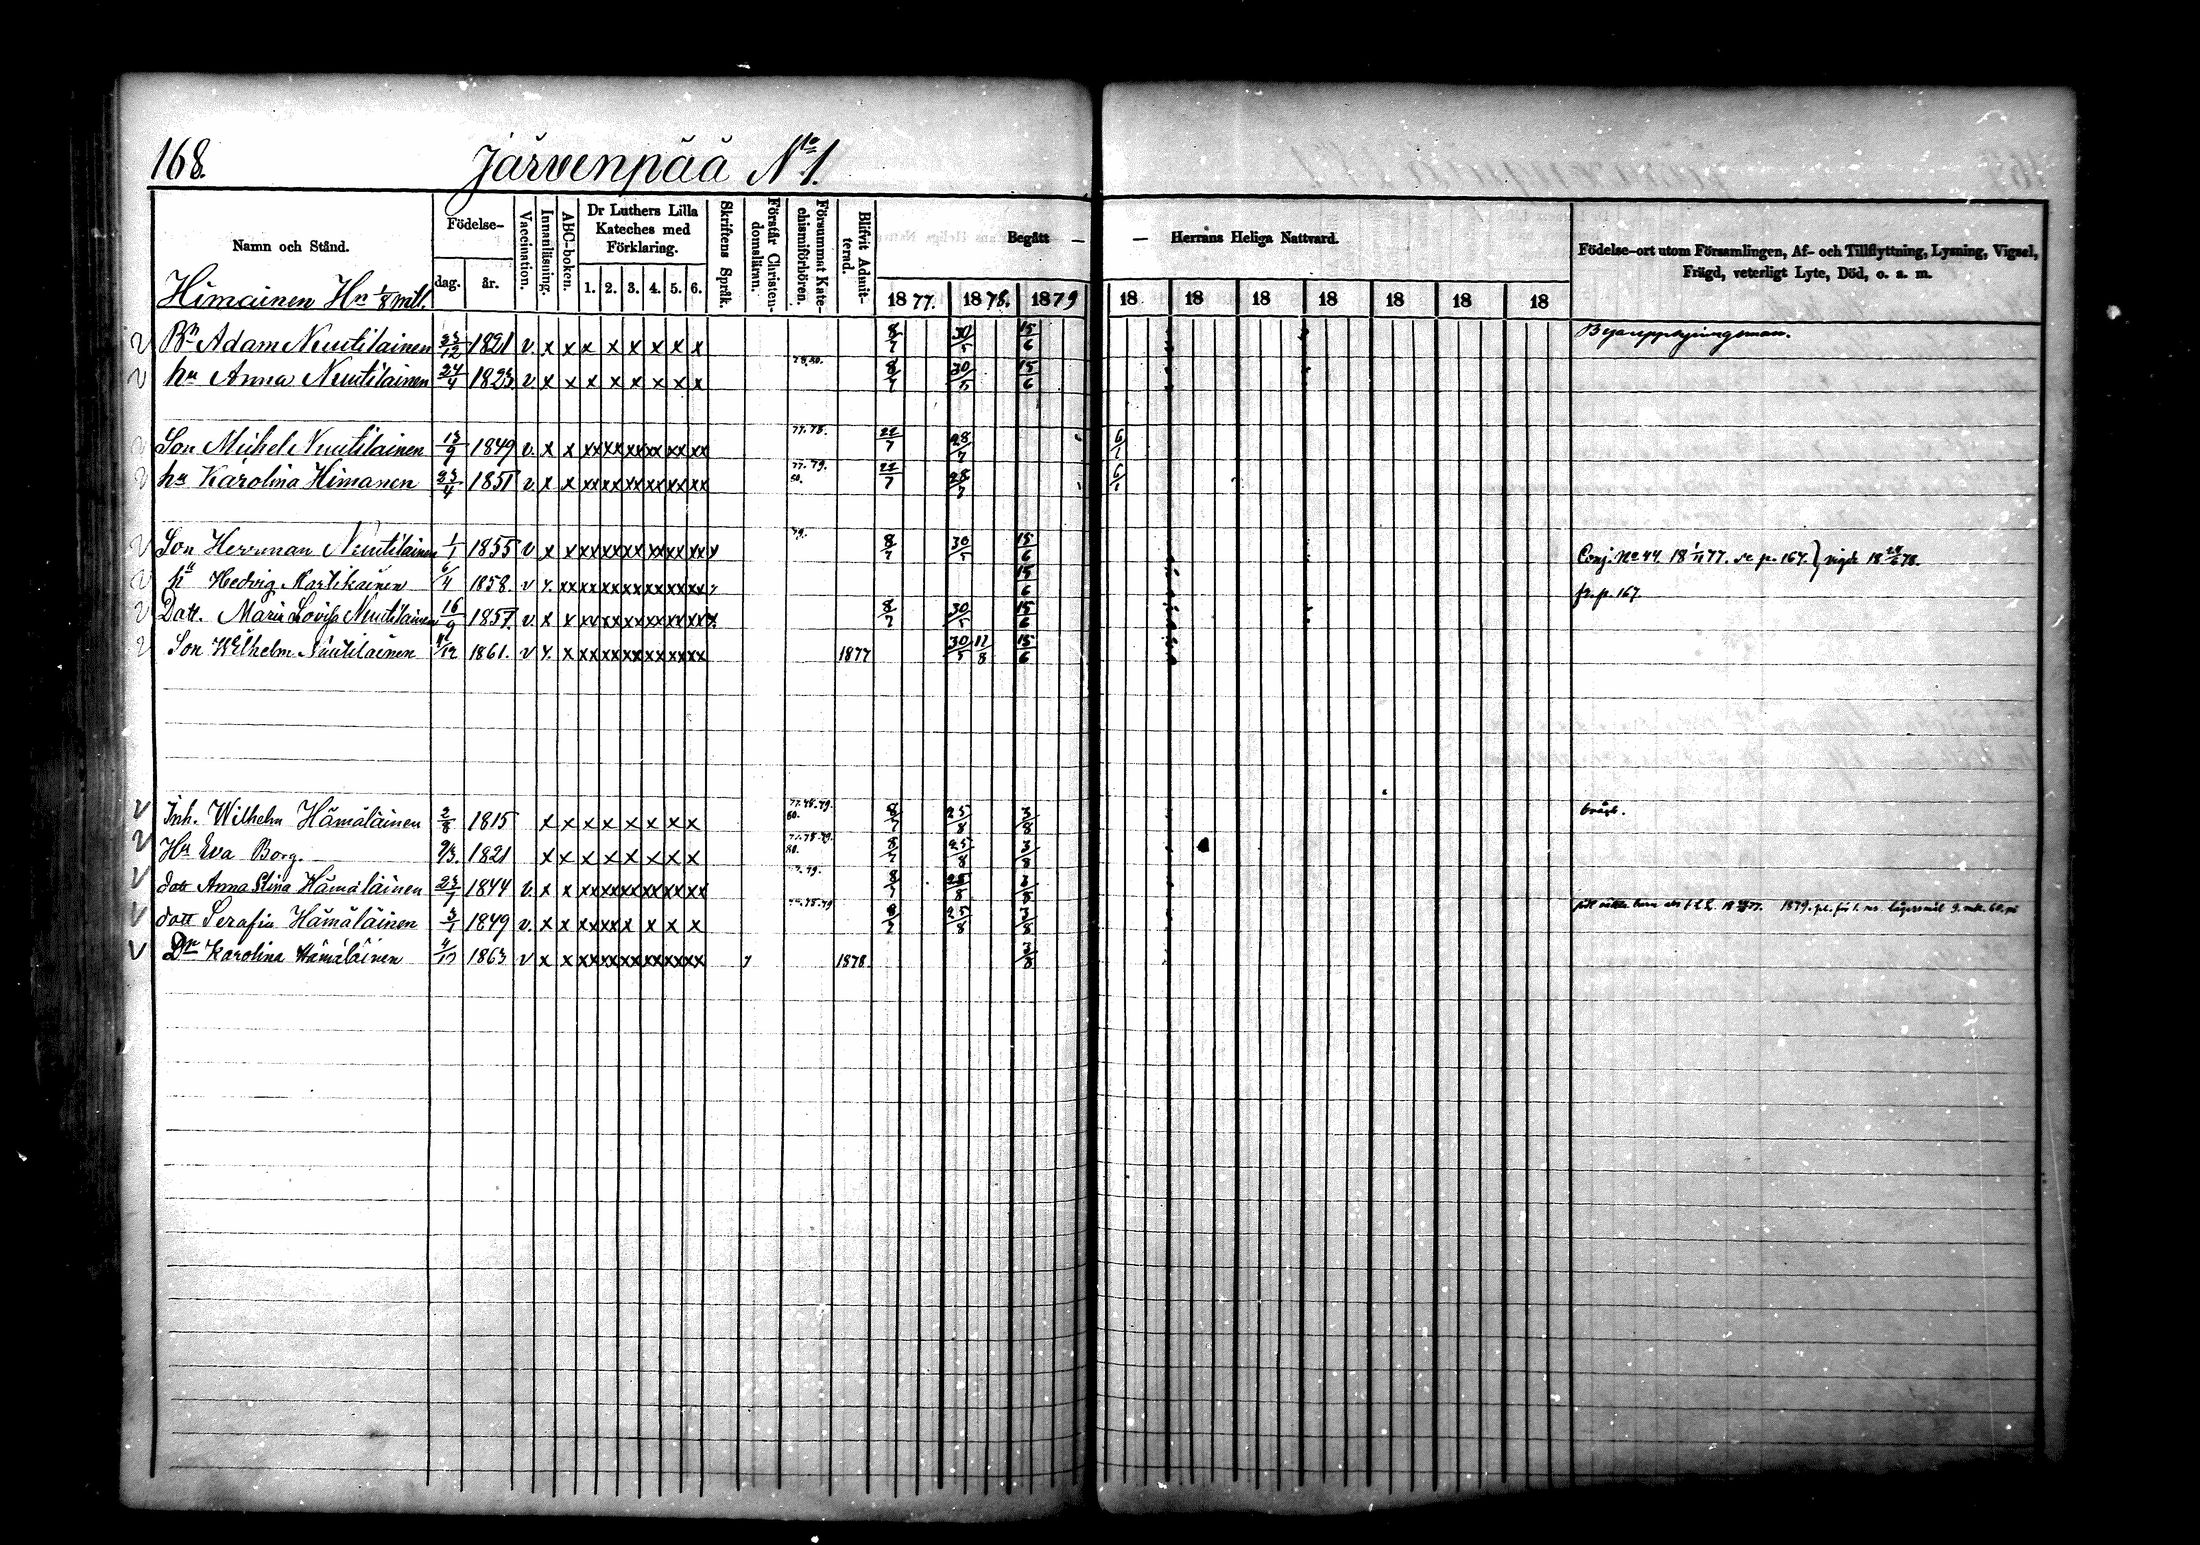 168.
Järvenpää No 1.
Namn och Stånd.
Födelse-
dag.
år.
Vaccination.
Innanläsning.
ABC-boken.
Dr Luthers Lilla Kateches med Förklaring.
1. 2. 3. 4. 5. 6.
Skriftens Språk.
Förstår Christendomsläran.
Försummat Katechismiförhören.
Blifvit Admitterad.
Begått — — Herrans Heliga Nattvard.
1877. 1878. 1879 18 18 18 18 18 18 18
Födelse-ort utom Församlingen, Af- och Tillflyttning, Lysning, Vigsel, Frägd, veterligt Lyte, Död, o. a. m.
Himainen Hn 1/8 mtl.
v Bn Adam Nuutilainen 23/12 1821 v. x x x x x x x x 8/7 30/5 15/6
v hu Anna Nuutilainen 24/4 1823 v x x x x x x x x 78.80. 8/7 30/5 15/6
v Son Michel Nuutilainen 13/9 1849 v. x x xx xx xx xx xx xx 77.78. 22/7 28/7 6/1
v hu Karolina Himanen 23/4 1851 v x x xx xx xx xx xx xx 77.79. 80. 22/7 28/7 6/1
v Son Herrman Nuutilainen 1/1 1855 v x x xx xx xx xx xx xx 79. 8/7 30/5 15/6 Conj. No 44. 18 1/11 77. se p. 167. } vigde 18 /6 78.
v hu Hedvig Martikainen 6/4 1858. v x. xx xx xx xx xx xx xx 15/6 fr. p. 167.
v Dott. Maria Lovisa Nuutilainen 16/9 1857. v x x xx xx xx xx xx xx 8/7 30/5 15/6
v Son Wilhelm Nuutilainen /12 1861. v x. x xx xx xx xx xx xx 1877 30/5 11/8 15/6
v Inh. Wilhelm Hämäläinen 2/8 1815 x x x x x x x x 77.78.79. 80. 8/7 25/8 3/8 bråck.
v Hu Eva Borg. 9/3. 1821 x x x x x x x x 77.78.79. 80. 8/7 25/8 3/8
v dott Anna Stina Hämäläinen 23/7 1844 v. x x xx xx xx xx xx xx 79. 8/7 25/8 3/8
v dott Serafia Hämäläinen 3/1 1849 v. x x xx xx x x x x 8/7 25/8 3/8 1879. pl. för l.
v Dr Karolina Hämäläinen 4/12 1863 v x x xx xx xx xx xx xx 1878. 3/8